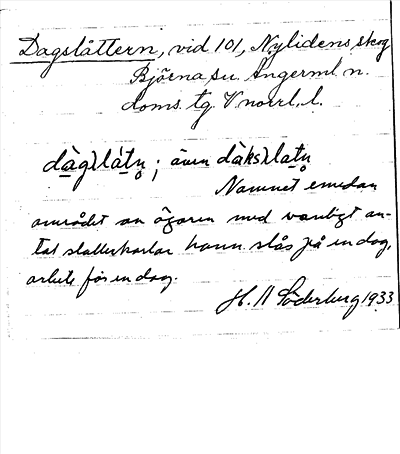 Dagslåttern, vid 101, Nylidens skog
Björna sn. Ångerml. n.
doms. tg. V norrl. l.
dàg)látn ; även dàks)latn
Namnet emedan
området av ägaren med vanligt an-
tal slåtterkarlar kunn. slås på en dag,
arbete för en dag.
H. A Söderberg 1933